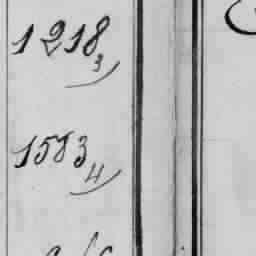 1218 3
1583 4